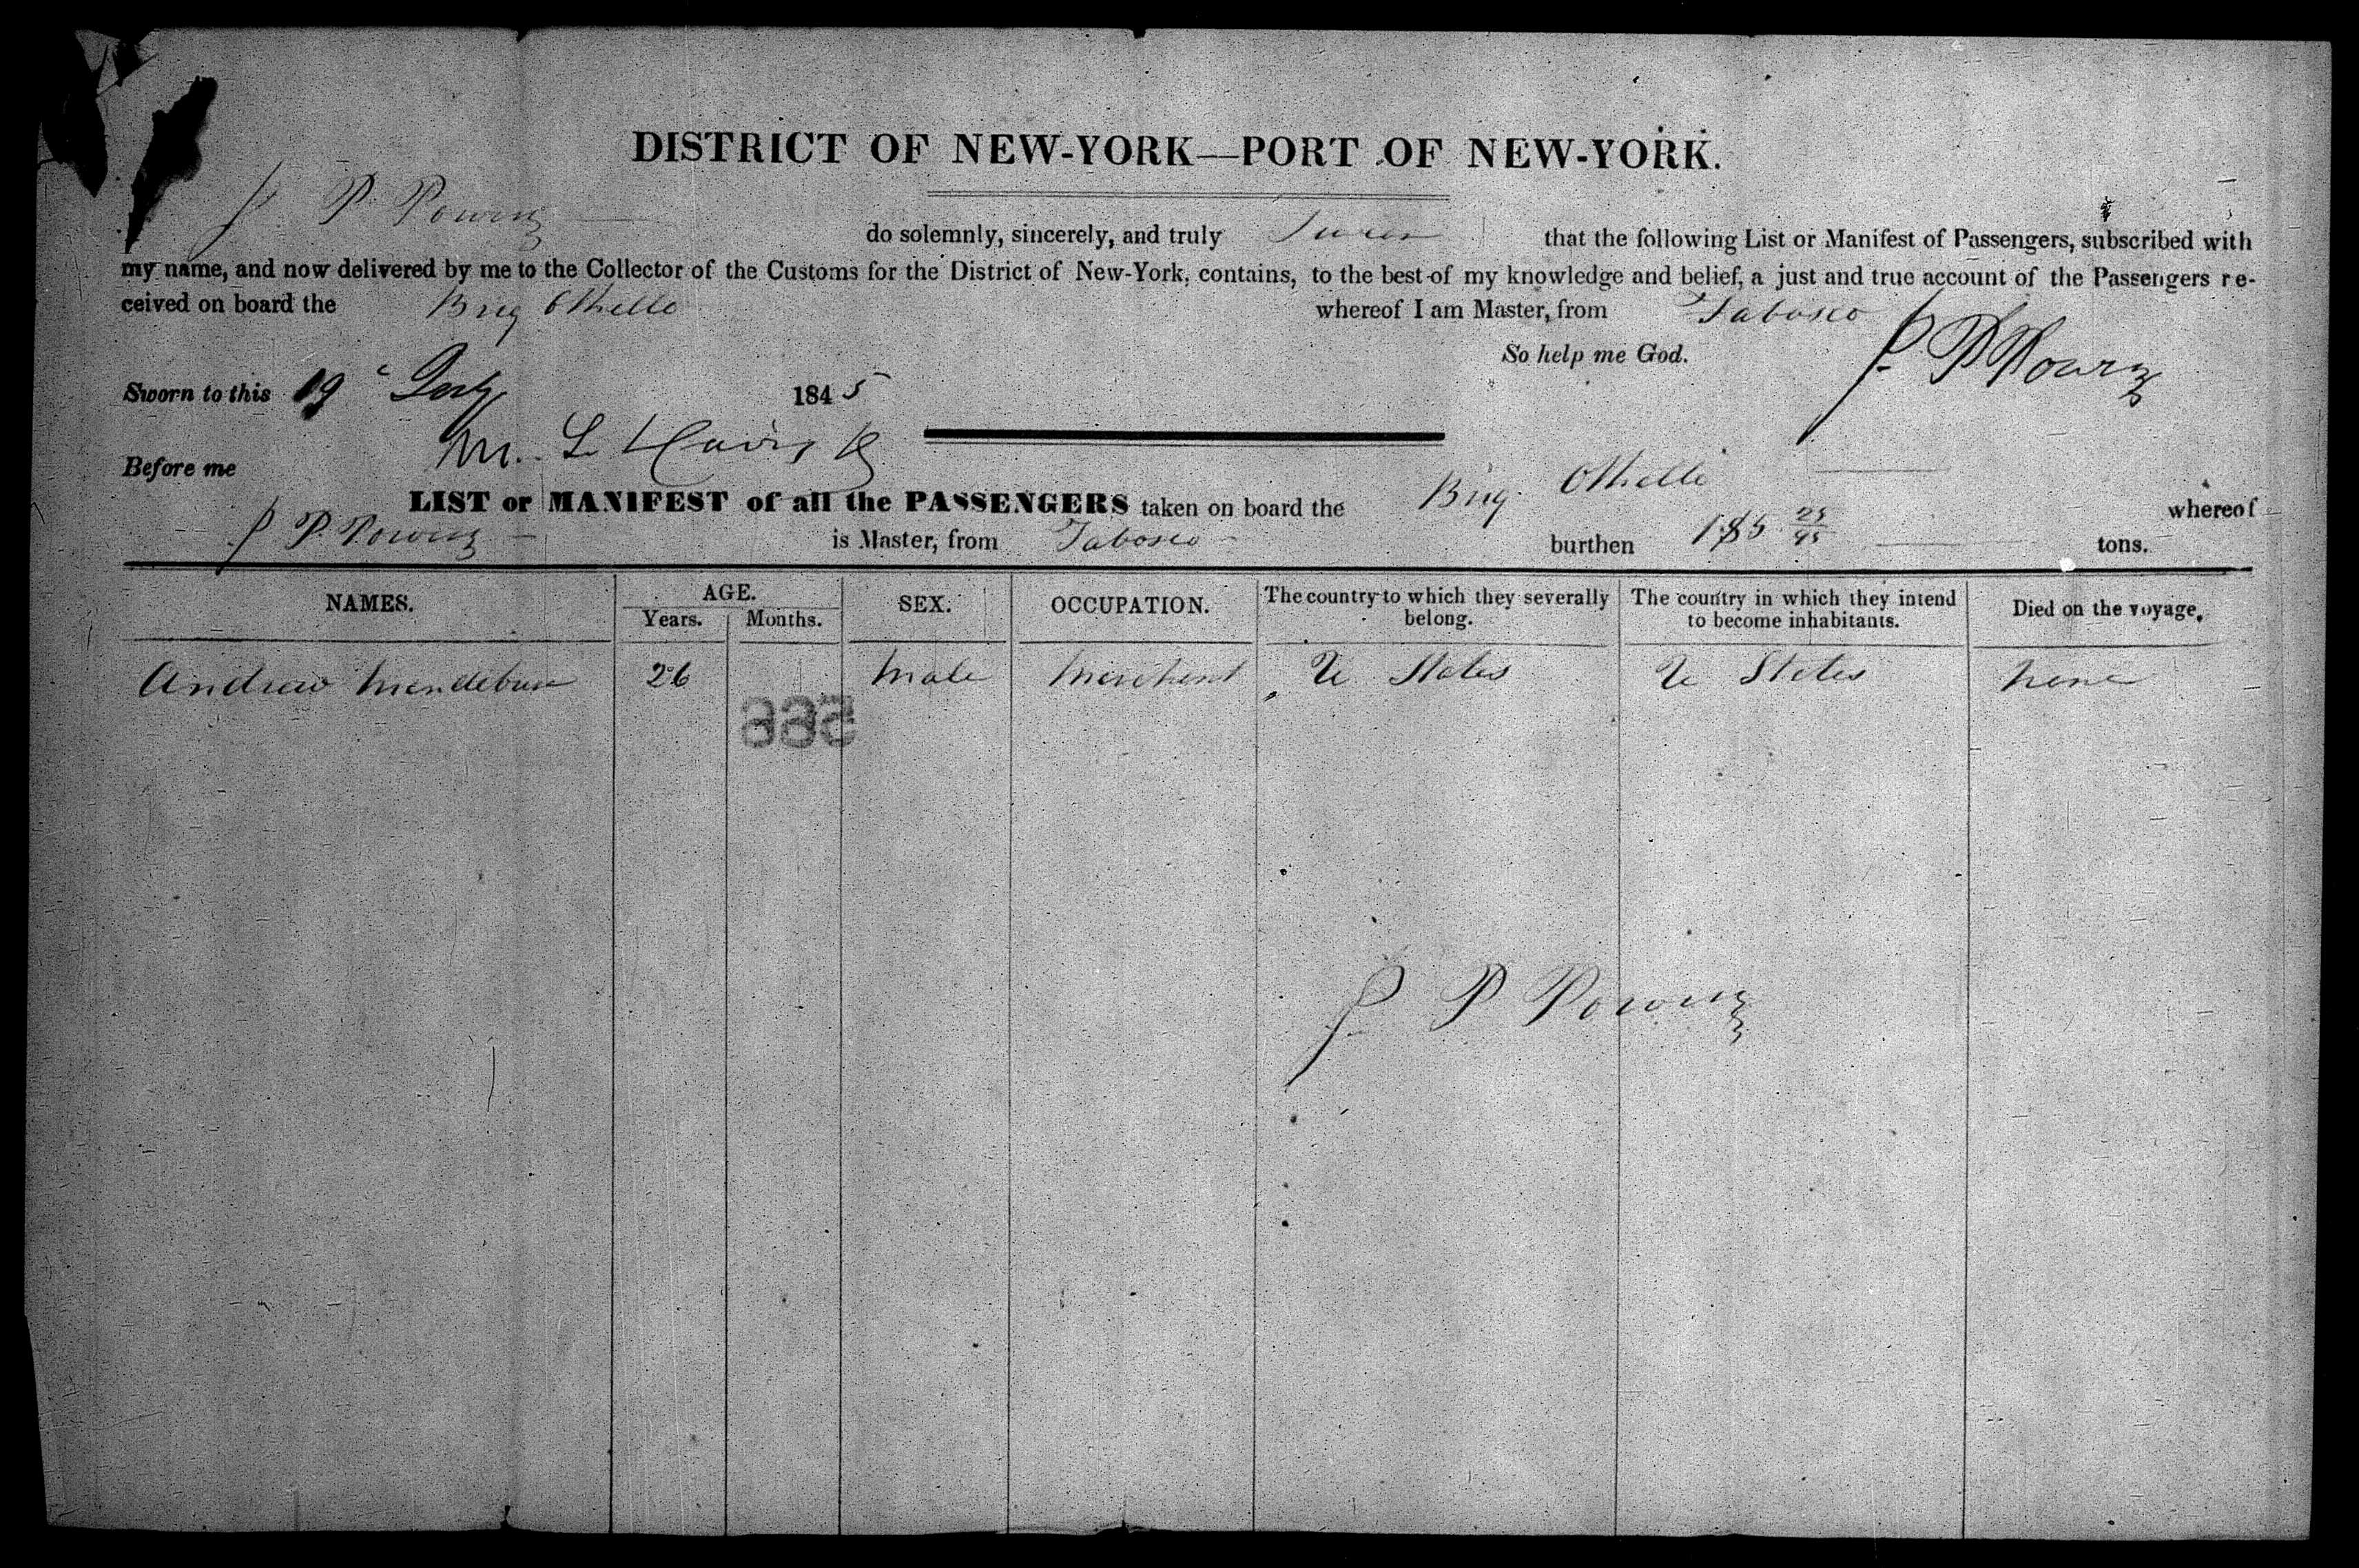 DISTRICT OF NEW-YORK—PORT OF NEW-YORK.
J P Powers do solemnly, sincerely, and truly Swear that the following List or Manifest of Passengers, subscribed with
my name, and now delivered by me to the Collector of the Customs for the District of New-York, contains, to the best of my knowledge and belief, a just and true account of the Passengers re-
ceived on board the Brig Othello whereof I am Master, from Tabasco
So help me God. J P Powers
Sworn to this 19 July 1845
Before me M. L. Davis
LIST or MANIFEST of all the PASSENGERS taken on board the Brig Othello whereof
J P Powers is Master, from Tabasco burthen tons.
NAMES. AGE. Years. Months. SEX. OCCUPATION. The country to which they severally belong. The country in which they intend to become inhabitants. Died on the voyage.
Andrew 26 Male Merchant U States U States None
J P Powers